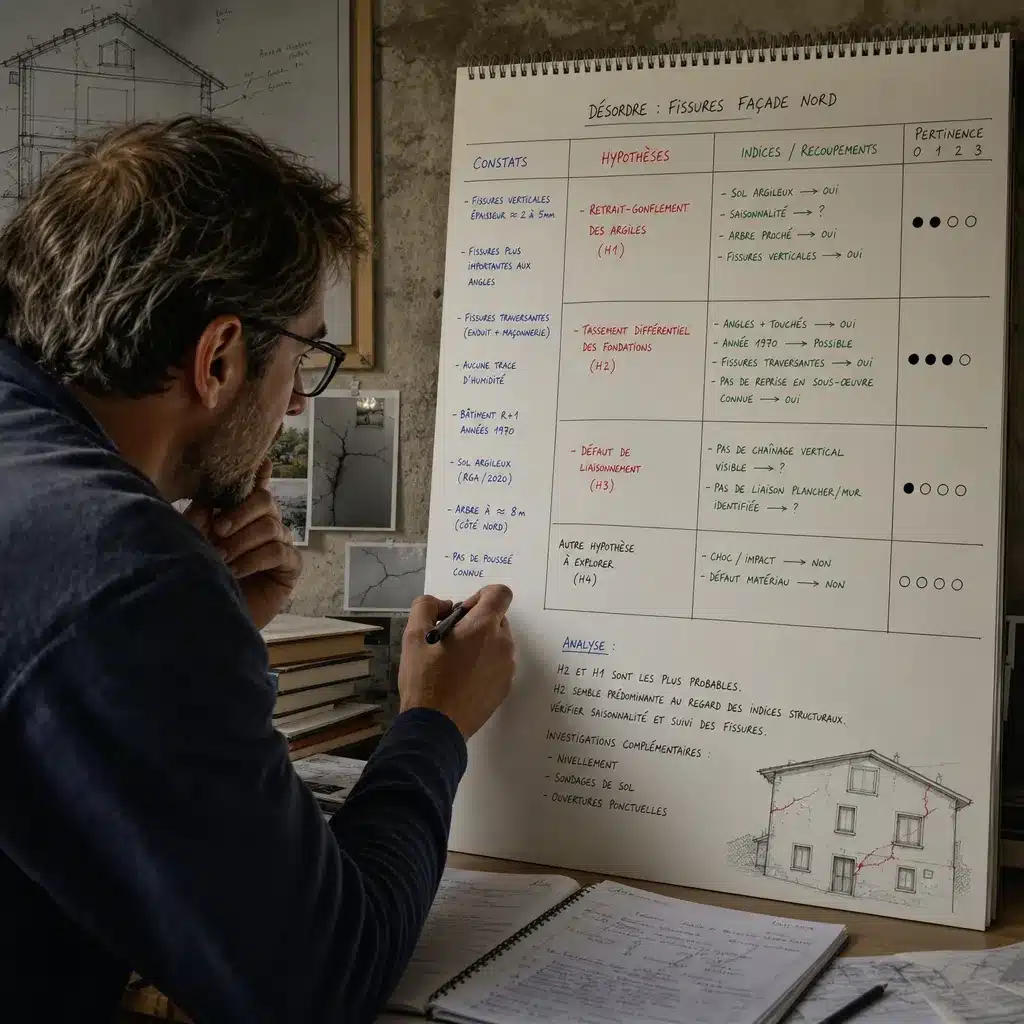 DÉSORDRE : FISSURES FAÇADE NORD
CONSTATS
HYPOTHÈSES
INDICES / RECOUPEMENTS
PERTINENCE
0 1 2 3
- FISSURES VERTICALES
ÉPAISSEUR ≈ 2 à 5mm
- FISSURES PLUS
IMPORTANTES AUX
ANGLES
- FISSURES TRAVERSANTES
(ENDUIT + MAÇONNERIE)
- AUCUNE TRACE
D'HUMIDITÉ
- BÂTIMENT R+1
ANNÉES 1970
- SOL ARGILEUX
(RGA/2020)
- ARBRE À ≈ 8m
(CÔTÉ NORD)
- PAS DE POUSSEÉ
CONNUE
- RETRAIT-GONFLEMENT
DES ARGILES
(H1)
- SOL ARGILEUX → OUI
- SAISONNALITÉ → ?
- ARBRE PROCHÉ → OUI
- FISSURES VERTICALES → OUI
- TASSEMENT DIFFÉRENTIEL
DES FONDATIONS
(H2)
- ANGLES + TOUCHÉS → OUI
- ANNÉE 1970 → POSSIBLE
- FISSURES TRAVERSANTES → OUI
- PAS DE REPRISE EN SOUS-ŒUVRE
CONNUE → OUI
- DÉFAUT DE
LIAISONNEMENT
(H3)
- PAS DE CHAÎNAGE VERTICAL
VISIBLE → ?
- PAS DE LIAISON PLANCHER/MUR
IDENTIFIÉE → ?
AUTRE HYPOTHÈSE
À EXPLORER
(H4)
- CHOC / IMPACT → NON
- DÉFAUT MATÉRIAU → NON
ANALYSE :
H2 ET H1 SONT LES PLUS PROBABLES.
H2 SEMBLE PRÉDOMINANTE AU REGARD DES INDICES STRUCTURAUX.
VÉRIFIER SAISONNALITÉ ET SUIVI DES FISSURES.
INVESTIGATIONS COMPLÉMENTAIRES :
- NIVELLEMENT
- SONDAGES DE SOL
- OUVERTURES PONCTUELLES